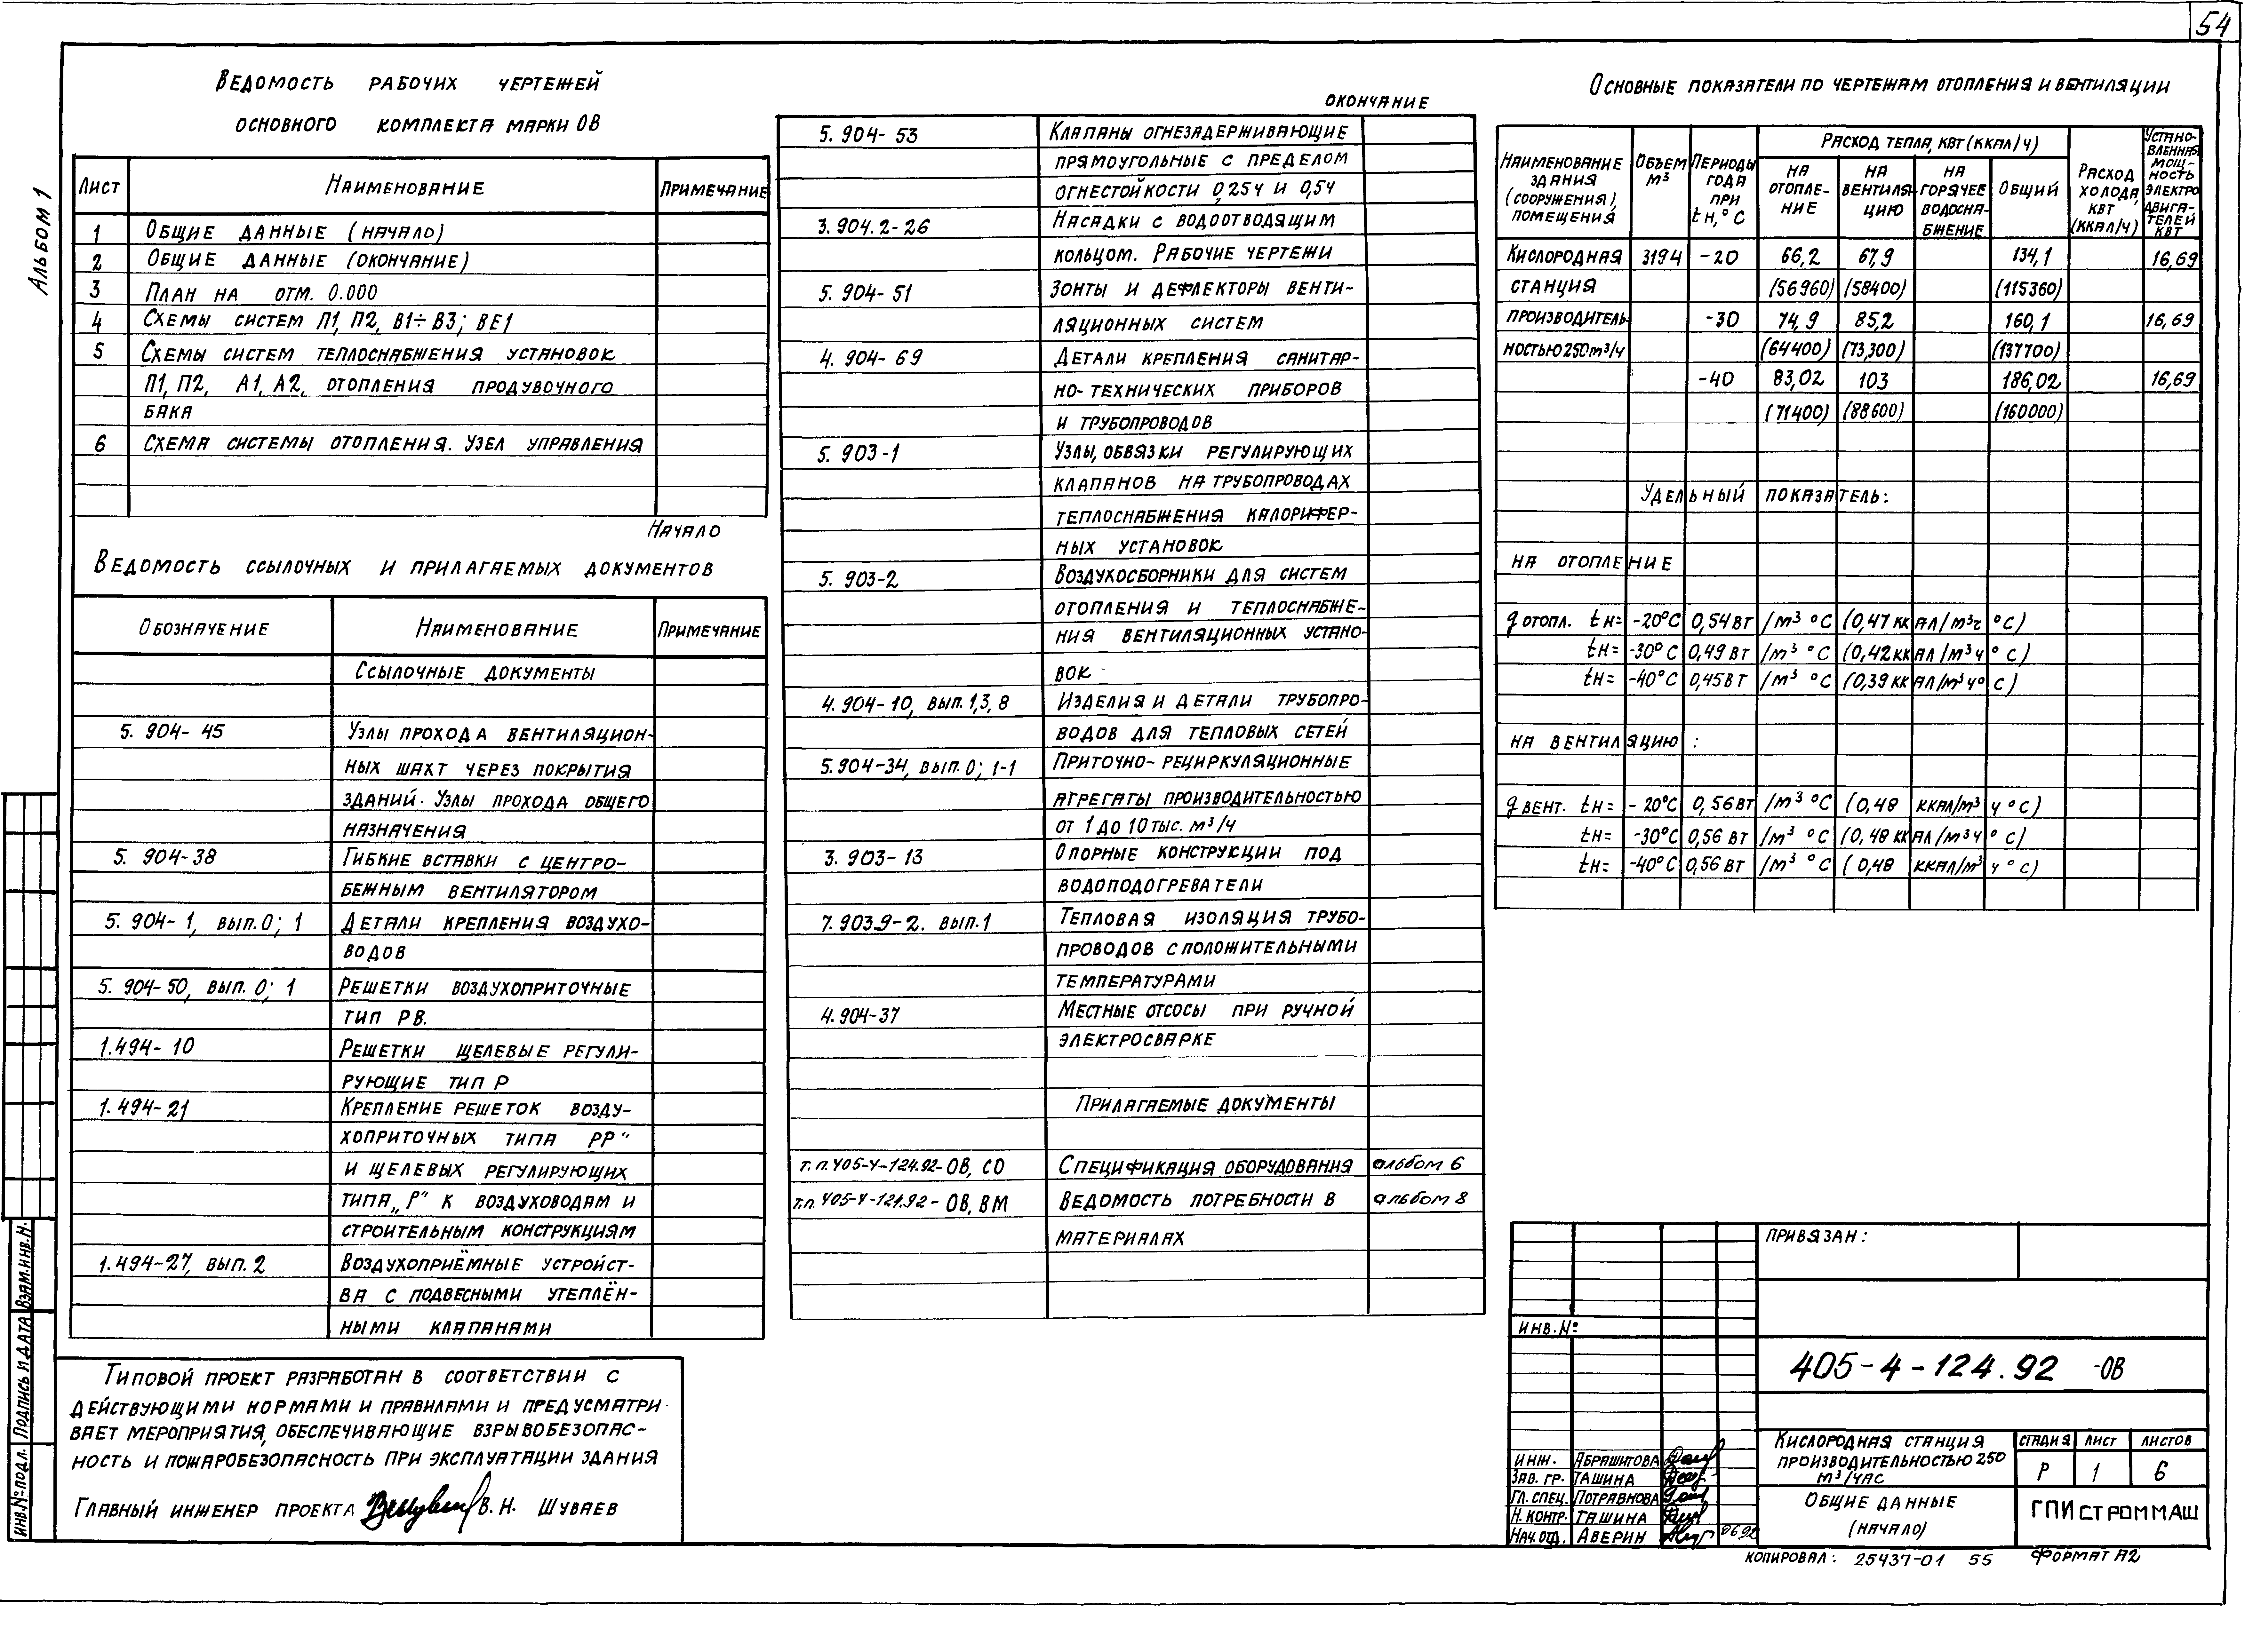 54
Альбом 1
Ведомость рабочих чертежей
основного комплекта марки ОВ
Лист Наименование Примечание
1 Общие данные (начало)
2 Общие данные (окончание)
3 План на отм. 0.000
4 Схемы систем П1, П2, В1÷В3; ВЕ1
5 Схемы систем теплоснабжения установок
П1, П2, А1, А2, отопления продувочного
бака
6 Схема системы отопления. Узел управления
Начало
Ведомость ссылочных и прилагаемых документов
Обозначение Наименование Примечание
Ссылочные документы
5. 904-45 Узлы прохода вентиляцион-
ных шахт через покрытия
зданий. Узлы прохода общего
назначения
5. 904-38 Гибкие вставки с центро-
бежным вентилятором
5. 904-1, вып. 0; 1 Детали крепления воздухо-
водов
5. 904-50, вып. 0; 1 Решетки воздухоприточные
тип РВ.
1.494-10 Решетки щелевые регули-
рующие тип Р
1.494-21 Крепление решеток возду-
хоприточных типа РР"
и щелевых регулирующих
типа „Р" к воздуховодам и
строительным конструкциям
1.494-27, вып. 2 Воздухоприёмные устройст-
ва с подвесными утеплён-
ными клапанами
Типовой проект разработан в соответствии с
действующими нормами и правилами и предусматри-
вает мероприятия, обеспечивающие взрывобезопас-
ность и пожаробезопасность при эксплуатации здания
Главный инженер проекта В. Н. Шуваев
окончание
5. 904-53 Клапаны огнезадерживающие
прямоугольные с пределом
огнестойкости 0,25ч и 0,5ч
3.904.2-26 Насадки с водоотводящим
кольцом. Рабочие чертежи
5. 904-51 Зонты и дефлекторы венти-
ляционных систем
4. 904-69 Детали крепления санитар-
но-технических приборов
и трубопроводов
5. 903-1 Узлы, обвязки регулирующих
клапанов на трубопроводах
теплоснабжения калорифер-
ных установок
5. 903-2 Воздухосборники для систем
отопления и теплоснабже-
ния вентиляционных устано-
вок
4.904-10, вып. 1,3,8 Изделия и детали трубопро-
водов для тепловых сетей
5.904-34, вып. 0; 1-1 Приточно-рециркуляционные
агрегаты производительностью
от 1 до 10 тыс. м³/ч
3. 903-13 Опорные конструкции под
водоподогреватели
7.903.9-2. вып.1 Тепловая изоляция трубо-
проводов с положительными
температурами
4.904-37 Местные отсосы при ручной
электросварке
Прилагаемые документы
т.п.405-4-124.92-ОВ, СО Спецификация оборудования альбом 6
т.п.405-4-124.92-ОВ, ВМ Ведомость потребности в альбом 8
материалах
Основные показатели по чертежам отопления и вентиляции
Наименование здания (сооружения), помещения Объем м³ Периоды года при tн,°С Расход тепла, кВт (ккал/ч) Расход холода, кВт (ккал/ч) Установленная мощность электродвигателей кВт
на отопление на вентиляцию на горячее водоснабжение Общий
Кислородная 3194 -20 66,2 67,9 134,1 16,69
станция (56960) (58400) (115360)
производитель- -30 74,9 85,2 160,1 16,69
ностью 250 м³/ч (64400) (73,300) (137700)
-40 83,02 103 186,02 16,69
(71400) (88600) (160000)
Удельный показатель:
на отопление
q отопл. tн= -20°С 0,54 Вт /м³ °С (0,47 ккал/м³г °С)
tн= -30°С 0,49 Вт /м³ °С (0,42 ккал/м³ч °С)
tн= -40°С 0,45 Вт /м³ °С (0,39 ккал/м³ч° С)
на вентиляцию :
q вент. tн= -20°С 0,56 Вт /м³ °С (0,48 ккал/м³ ч °С)
tн= -30°С 0,56 Вт /м³ °С (0,48 ккал/м³ч ° С)
tн= -40°С 0,56 Вт /м³ °С (0,48 ккал/м³ ч °С)
Привязан:
инв. №
405-4-124.92 -ОВ
Кислородная станция
производительностью 250
м³/час
стадия лист листов
Р 1 6
Общие данные
(начало)
ГПИстроммаш
инж. Абрашитова
Зав. гр. Ташина
Гл. спец. Потравнова
Н. контр. Ташина
Нач. отд. Аверин 06.92
копировал: 25437-01 55 формат А2
инв.№ подл. Подпись и дата Взам.инв.н.